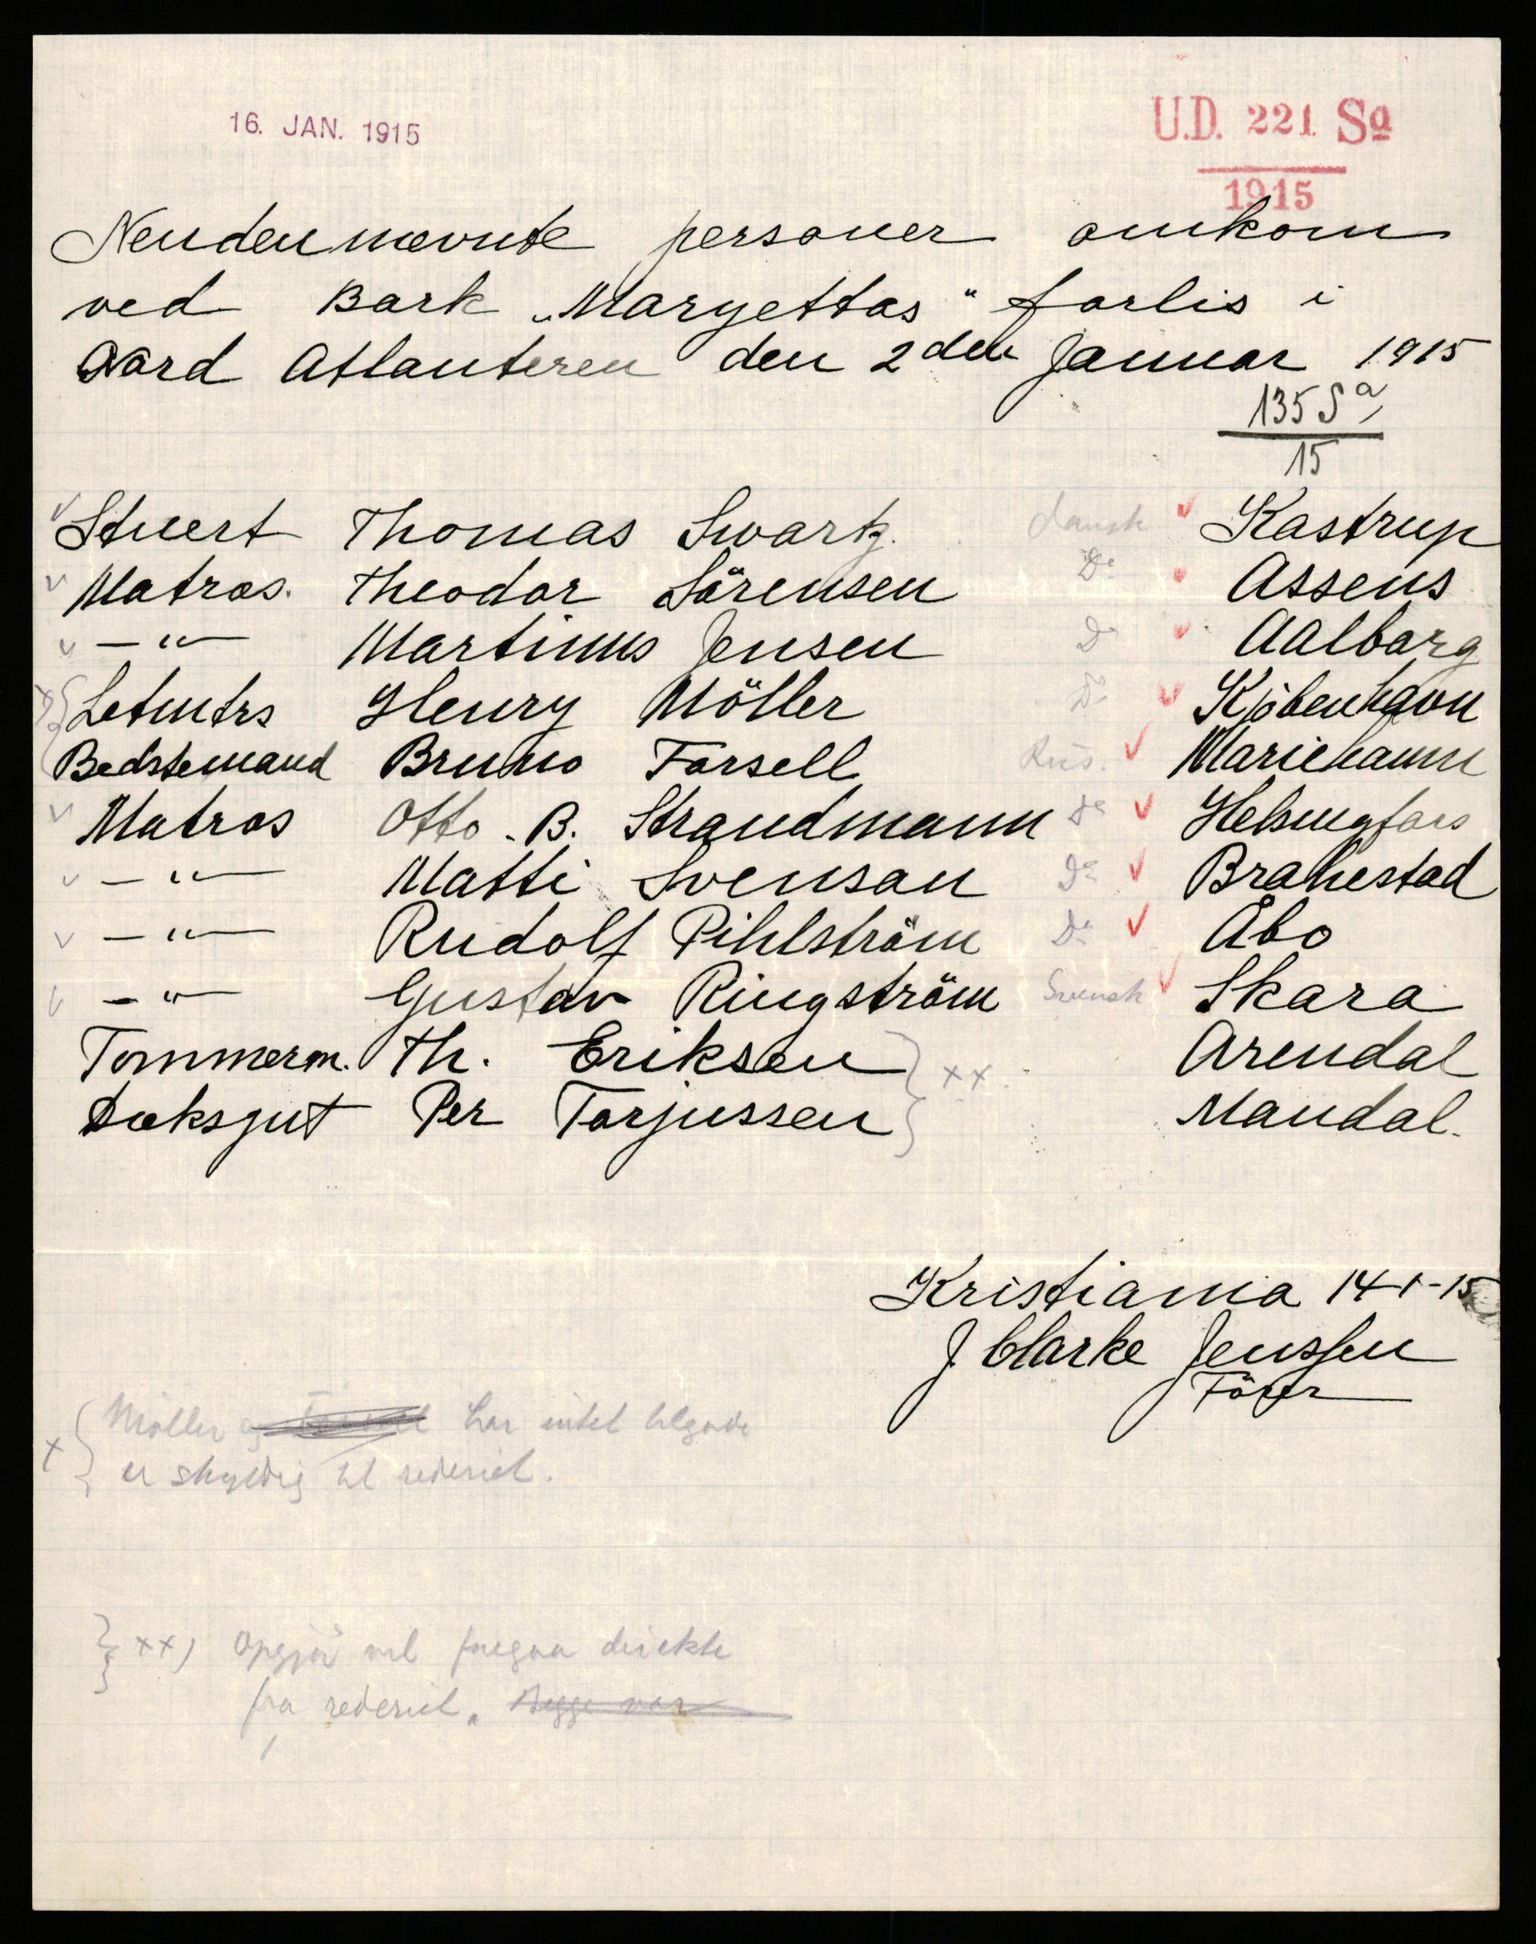 16. JAN. 1915
U.D. 221 Sa
1915
Nendenævnte personer omkom
ved Bark „Maryettas" forlis i
Nord Atlanteren den 2den Januar 1915
135 Sa
15
Stuert Thomas Swartz. dansk Kastrup
Matros. Theodor Sörensen Do Assens
— " — Martinus Jensen Do Aalborg
x { Letmtrs Henry Möller Do Kjöbenhavn
Bedstemand Bruno Forsell Rus. Mariehamn
Matros Otto. B. Strandmann Do Helsingfors
— " — Matti Svenson Do Brahestad
— " — Rudolf Pihlström Do Åbo
— " — Gustav Ringström Svensk Skara
Tommerm. Th. Eriksen } xx. Arendal
Dæksgut Per Torjussen } Mandal.
Kristiania 14-1-15
J. Clarke Jenssen
Förer
x { Möller og har intet tilgode
er skyldig til rederiet.
} xx) Opgjör vil foregaa direkte
fra rederiet. Begge var